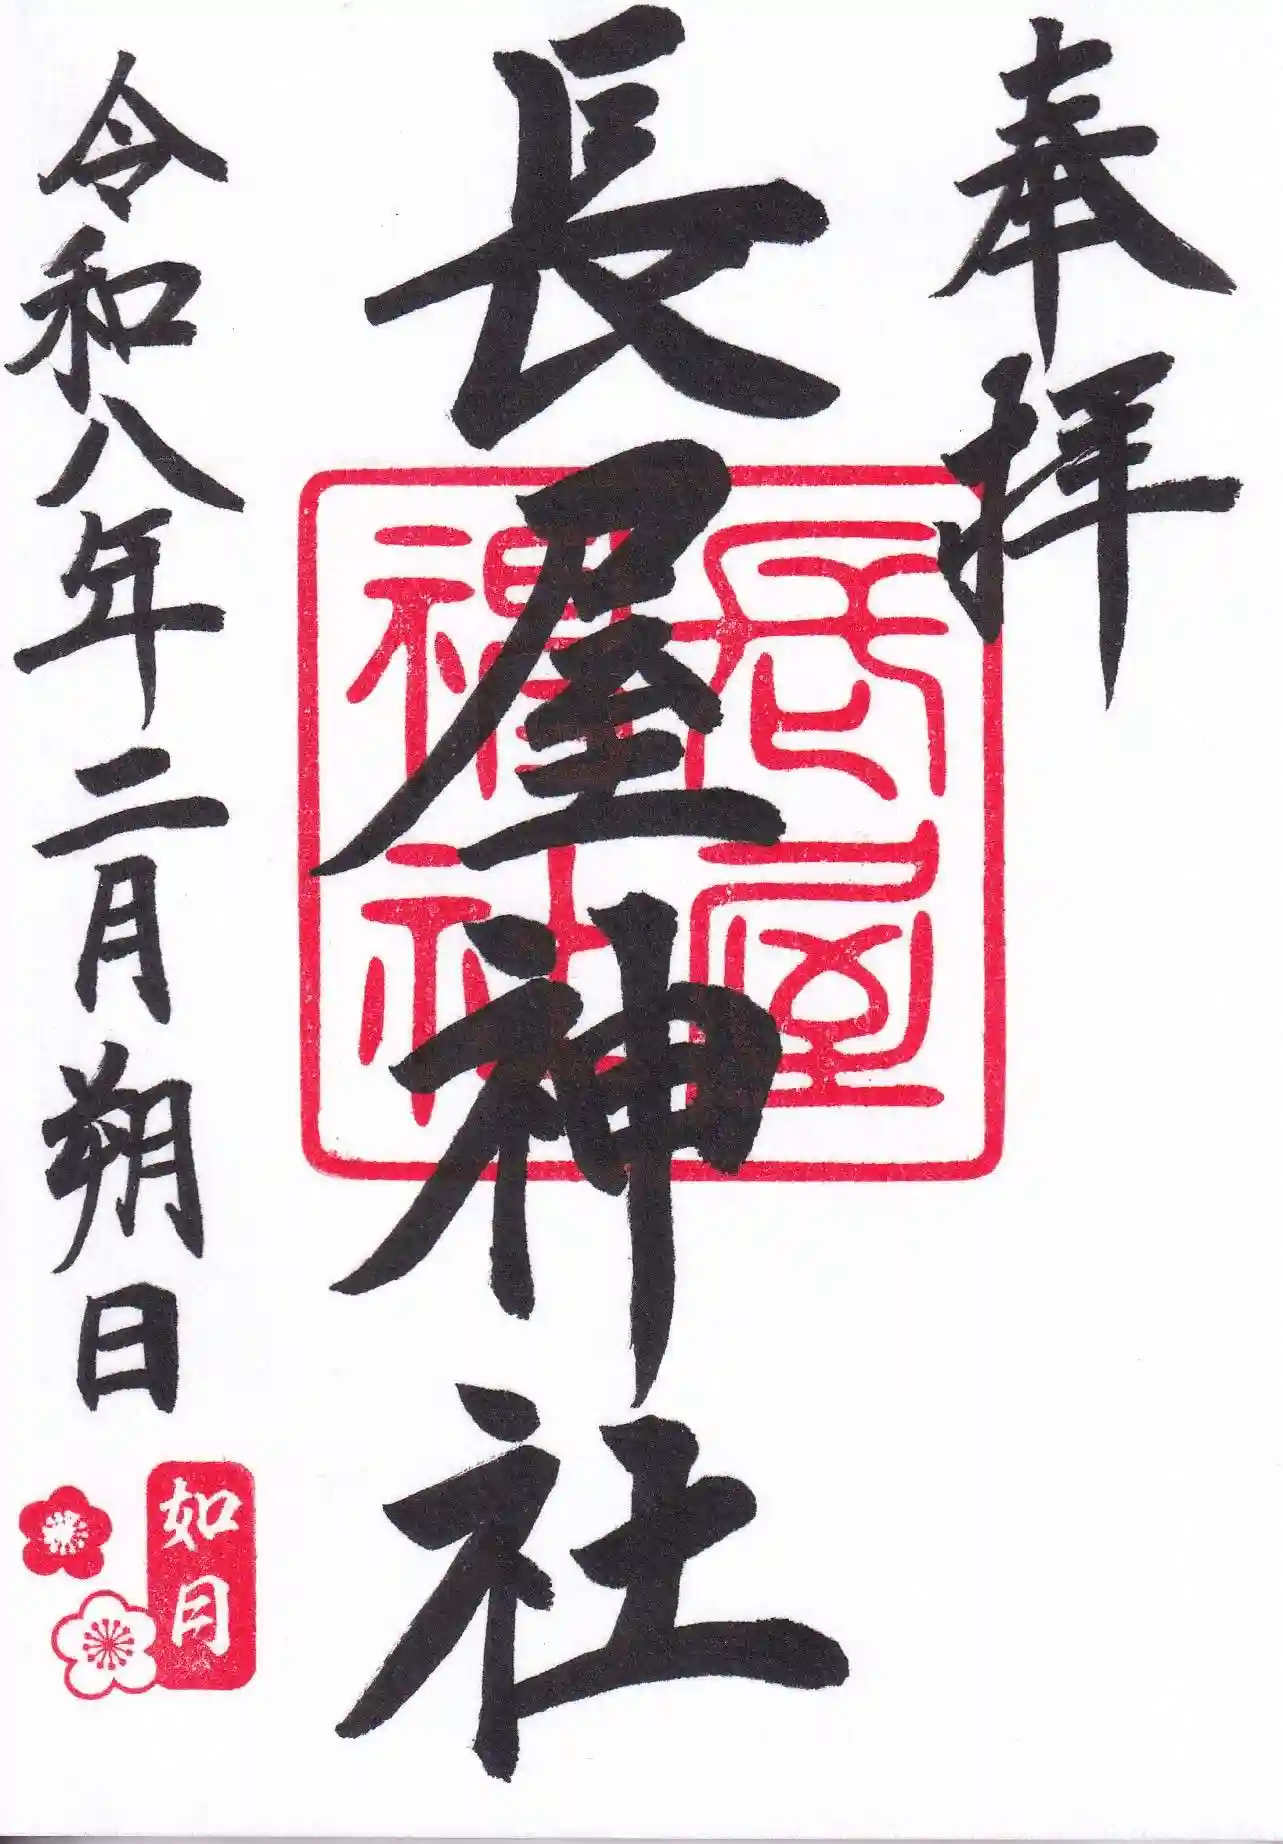 奉拝
長屋神社
長屋
神社
令和八年二月朔日
如月